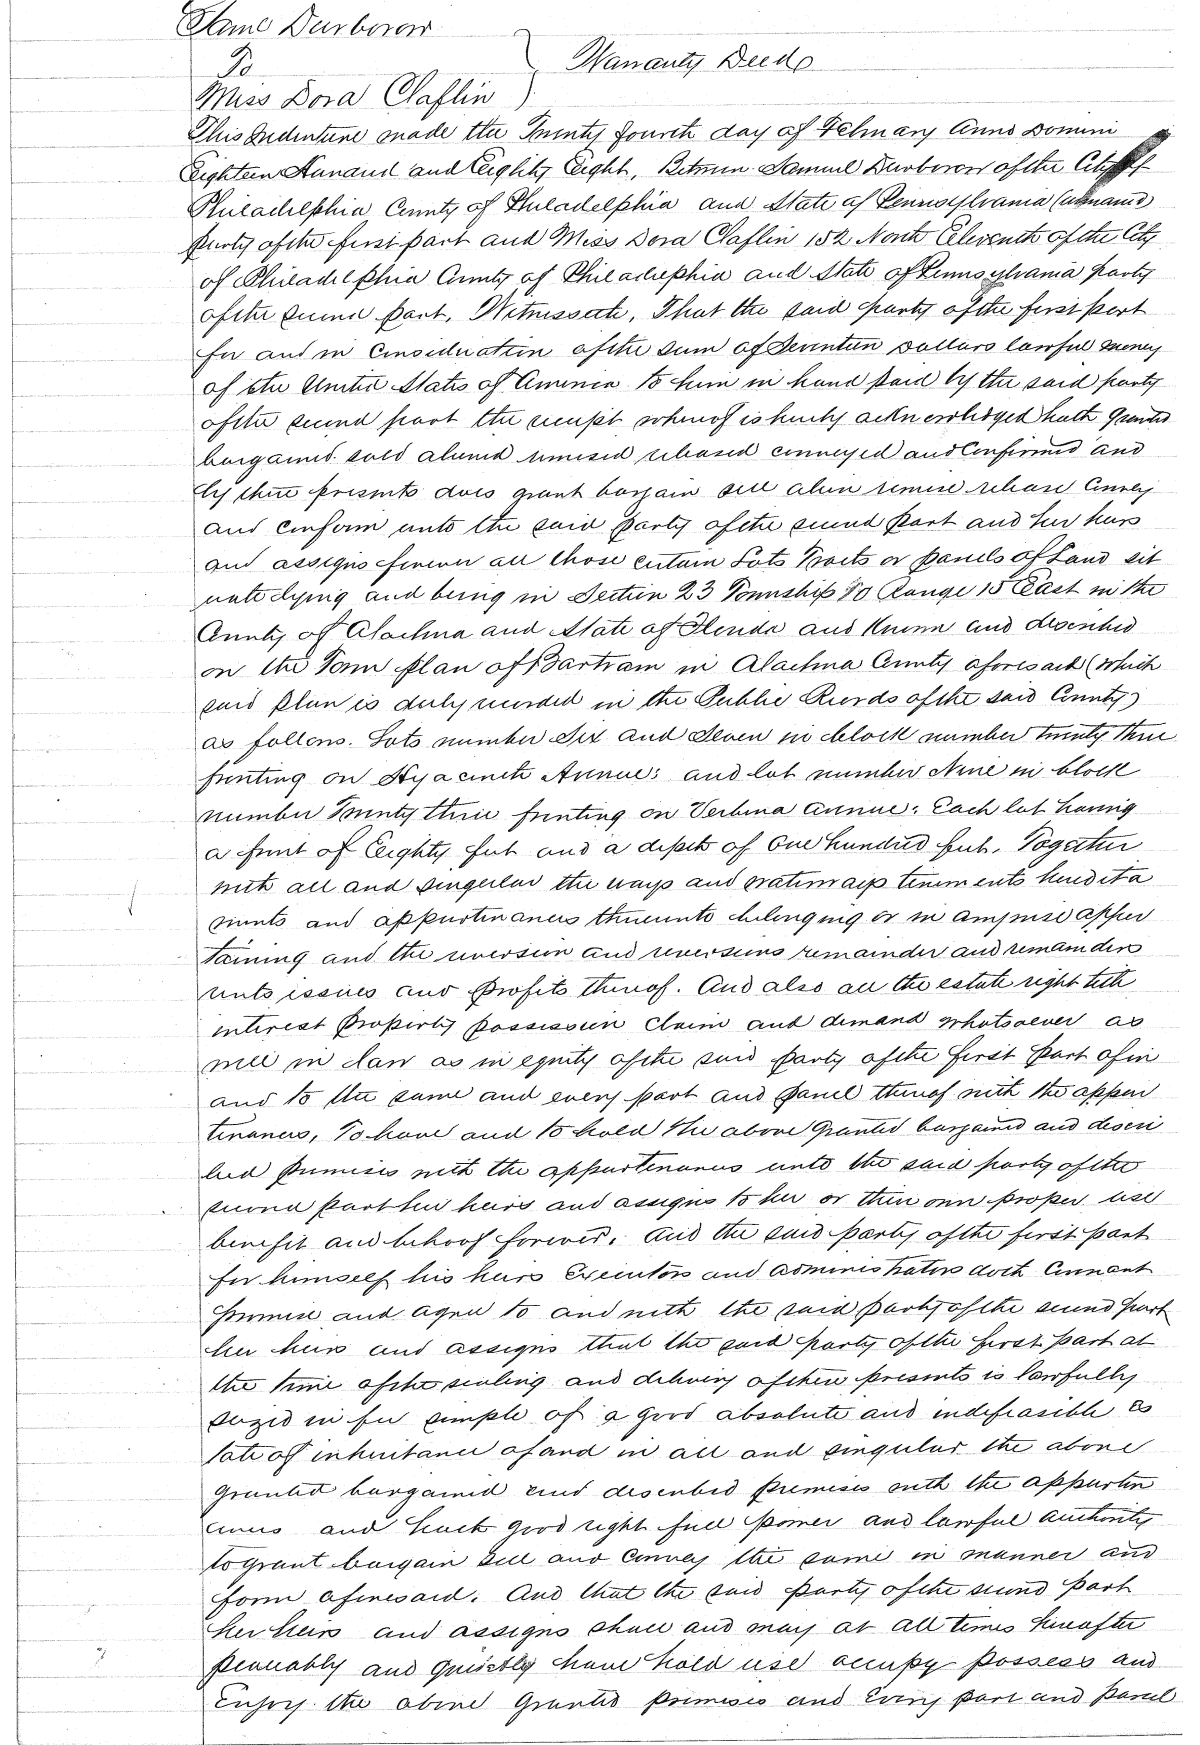 Saml Durborow
To } Warranty Deed
Miss Dora Claflin
This Indenture made the Twenty fourth day of February Anno Domini
Eighteen Hundred and Eighty Eight, Between Samuel Durborow of the City of
Philadelphia County of Philadelphia and State of Pennsylvania (unmarried)
party of the first part and Miss Dora Claflin 152 North Eleventh of the City
of Philadelphia County of Philadelphia and State of Pennsylvania party
of the second part, Witnesseth, That the said party of the first part
for and in Consideration of the sum of Seventeen Dollars lawful money
of the United States of America to him in hand paid by the said party
of the second part the receipt whereof is hereby acknowledged hath granted
bargained sold aliened remised released conveyed and Confirmed and
by these presents does grant bargain sell alien remise release Convey
and confirm unto the said party of the second part and her heirs
and assigns forever all those certain Lots Tracts or parcels of Land sit
uate lying and being in Section 23 Township 10 Range 18 East in the
County of Alachua and State of Florida and Known and described
on the Town plan of Bartram in Alachua County aforesaid (which
said plan is duly recorded in the Public Records of the said County)
as follows. Lots number Six and Seven in block number twenty three
fronting on Hyacinth Avenue; and lot number Nine in block
number Twenty three fronting on Verbena avenue: Each lot having
a front of Eighty feet and a depth of One hundred feet. Together
with all and singular the ways and waterways tenements heredita
ments and appurtenances thereunto belonging or in anywise apper
taining and the reversion and reversions remainder and remainders
rents issues and profits thereof. And also all the estate right title
interest property possession claim and demand whatsoever as
well in law as in equity of the said party of the first part of in
and to the same and every part and parcel thereof with the appur
tenances, To have and to hold the above granted bargained and descri
bed premises with the appurtenances unto the said party of the
second part her heirs and assigns to her or their own proper use
benefit and behoof forever. And the said party of the first part
for himself his heirs Executors and administrators doth Covenant
promise and agree to and with the said party of the second part
her heirs and assigns that the said party of the first part at
the time of the sealing and delivery of these presents is lawfully
seized in fee simple of a good absolute and indefeasible es
tate of inheritance of and in all and singular the above
granted bargained and described premises with the appurten
ances and hath good right full power and lawful authority
to grant bargain sell and convey the same in manner and
form aforesaid. And that the said party of the second part
her heirs and assigns shall and may at all times hereafter
peaceably and quietly have hold use occupy possess and
enjoy the above granted premises and every part and parcel